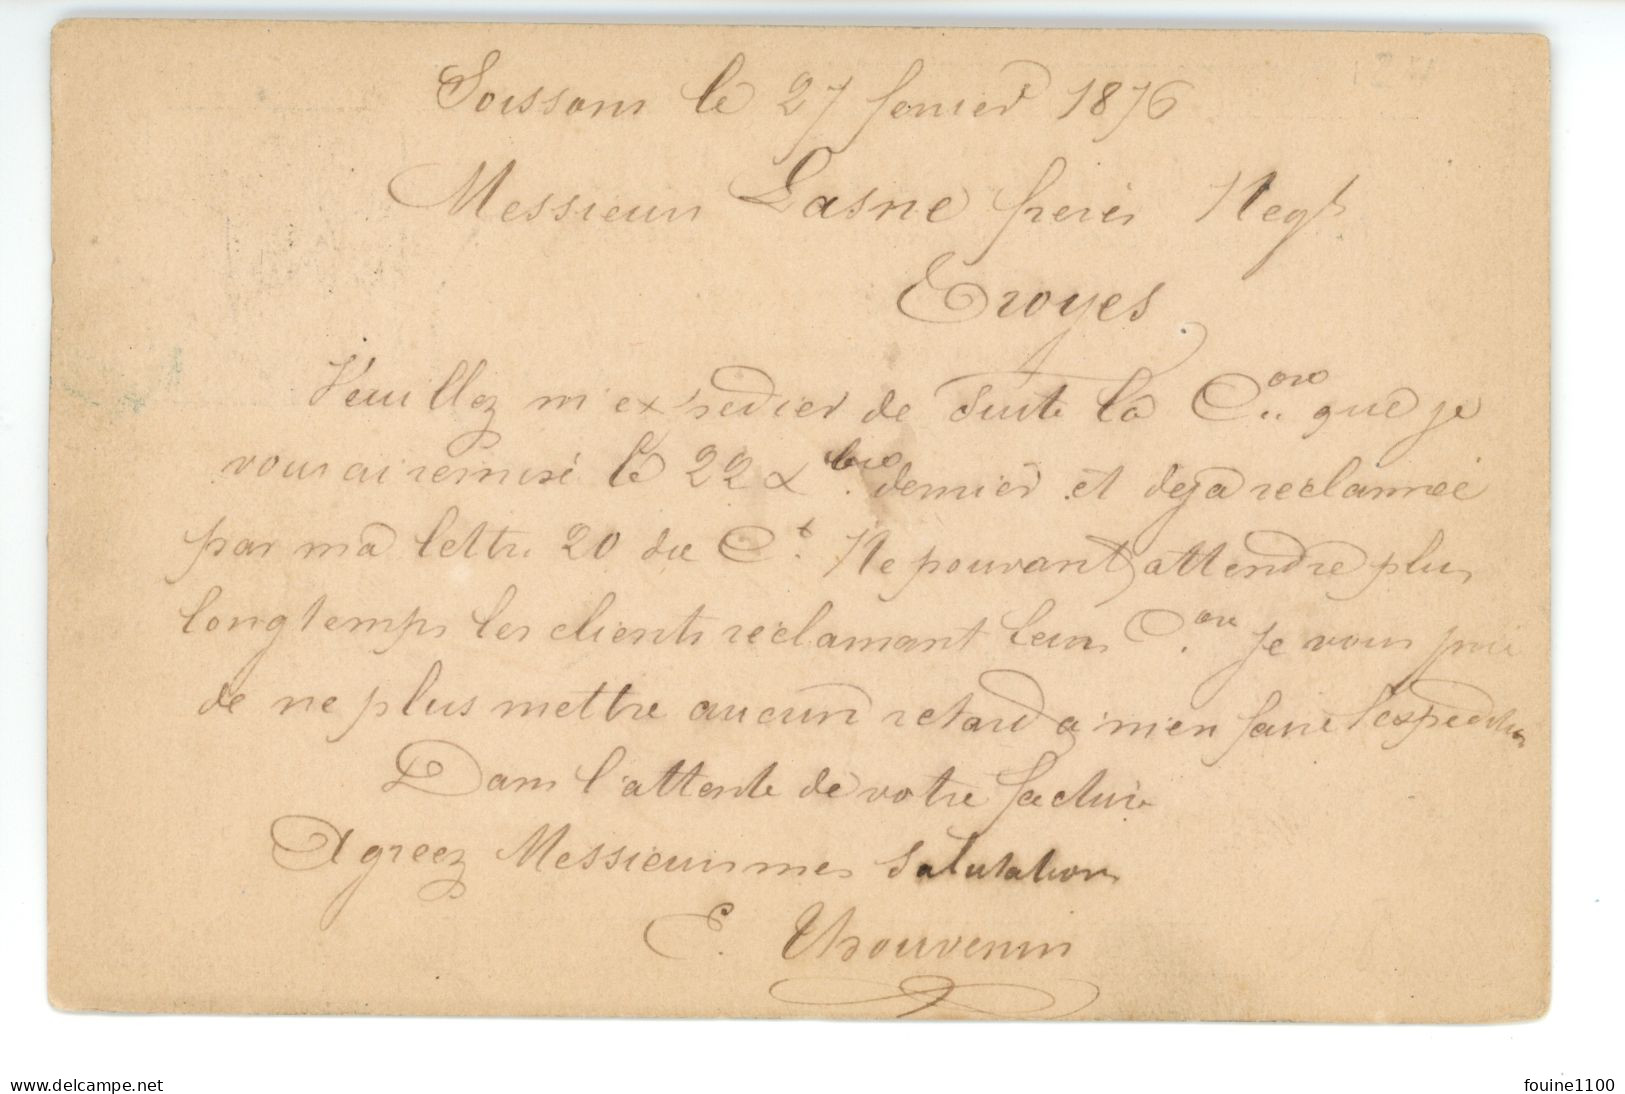 Soissons le 27 fevrier 1876
Messieurs Lasne freres Negt
Troyes.
Veuillez m'expedier de suite la C.on que je
vous ai remise le 22 Xbre dernier et deja reclamée
par ma lettre 20 du Ct. Ne pouvant attendre plus
longtemps les clients reclamant leurs C.on Je vous prie
de ne plus mettre aucun retard a m'en faire l'expedition
Dans l'attente de votre facture
Agreez Messieurs mes Salutations
E. Thouvenin
delcampe.net
fouine1100